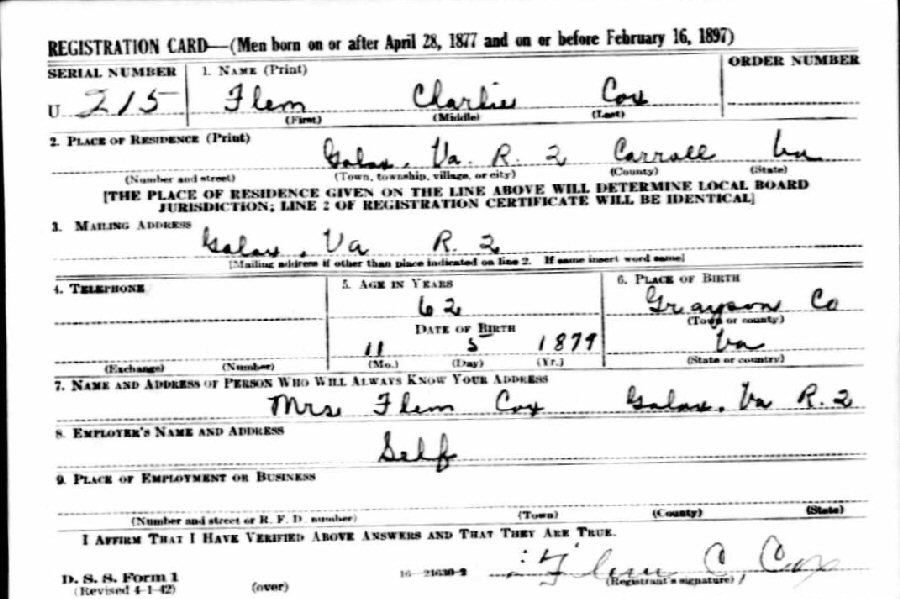 REGISTRATION CARD—(Men born on or after April 28, 1877 and on or before February 16, 1897)
SERIAL NUMBER 1. NAME (Print) ORDER NUMBER
U 215 Flem Charlie Cox
(First) (Middle) (Last)
2. PLACE OF RESIDENCE (Print)
Galax, Va. R. 2 Carroll Va
(Number and street) (Town, township, village, or city) (County) (State)
[THE PLACE OF RESIDENCE GIVEN ON THE LINE ABOVE WILL DETERMINE LOCAL BOARD
JURISDICTION; LINE 2 OF REGISTRATION CERTIFICATE WILL BE IDENTICAL]
3. MAILING ADDRESS
Galax, Va R. 2
[Mailing address if other than place indicated on line 2. If same insert word same]
4. TELEPHONE 5. AGE IN YEARS 6. PLACE OF BIRTH
62 Grayson Co
DATE OF BIRTH (Town or county)
11 5 1879 Va
(Exchange) (Number) (Mo.) (Day) (Yr.) (State or country)
7. NAME AND ADDRESS OF PERSON WHO WILL ALWAYS KNOW YOUR ADDRESS
Mrs Flem Cox Galax, Va R. 2
8. EMPLOYER'S NAME AND ADDRESS
Self
9. PLACE OF EMPLOYMENT OR BUSINESS
(Number and street or R. F. D. number) (Town) (County) (State)
I AFFIRM THAT I HAVE VERIFIED ABOVE ANSWERS AND THAT THEY ARE TRUE.
Flem C, Cox
D. S. S. Form 1 16—21630-2 (Registrant's signature)
(Revised 4-1-42) (over)